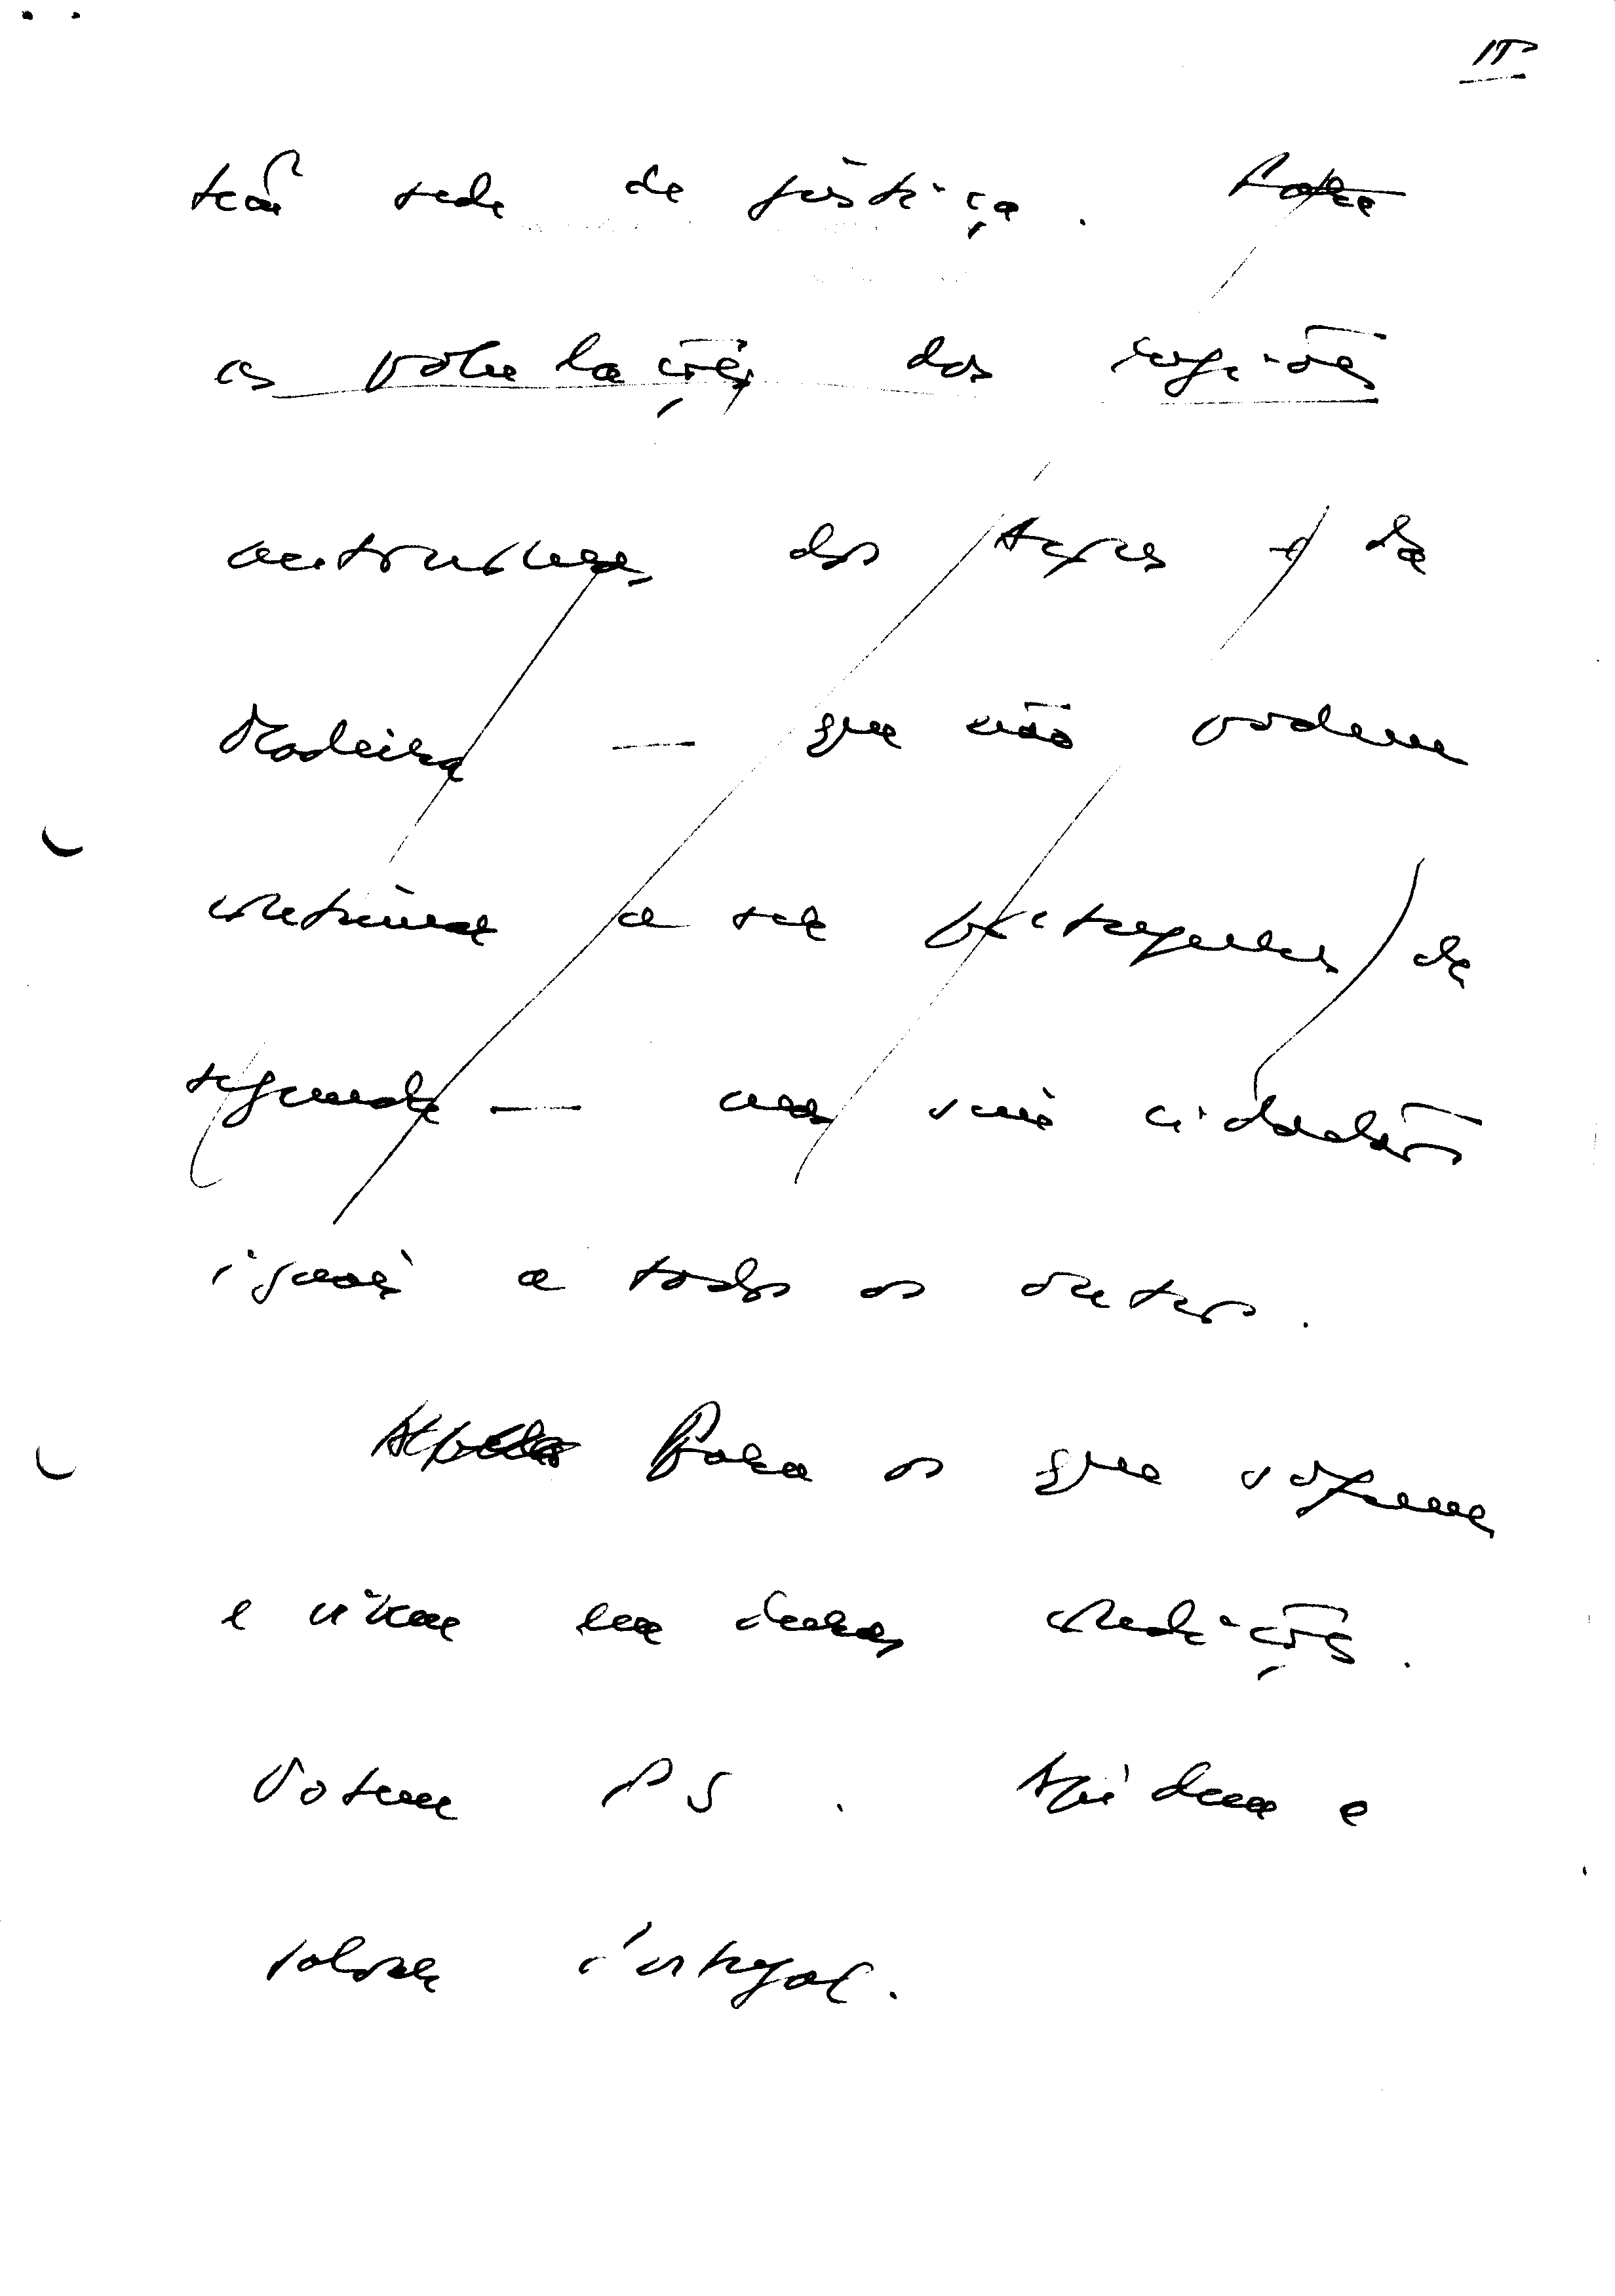 15
têm sede de justiça. Para
as populações das regiões
autónomas dos Açores e da
Madeira — que não podem
continuar a ser portugueses de
segunda — mas sim cidadãos
iguais a todos os outros.
Para os que sofrem
e vivem em duras condições.
Votem PS. Ajudem a
salvar Portugal.